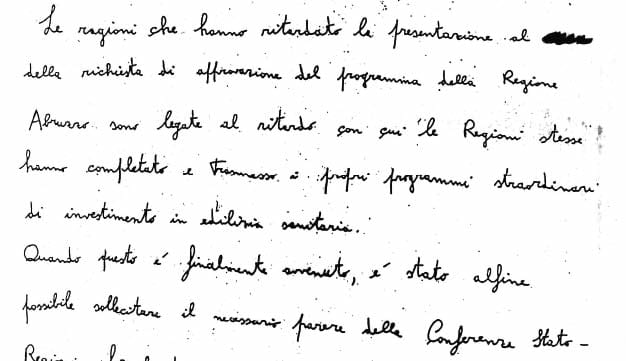 Le ragioni che hanno ritardato la presentazione al
della richiesta di approvazione del programma della Regione
Abruzzo sono legate al ritardo con cui le Regioni stesse
hanno completato e trasmesso i propri programmi straordinari
di investimento in edilizia sanitaria.
Quando questo e' finalmente avvenuto, e' stato alfine
possibile sollecitare il necessario parere della Conferenza Stato-